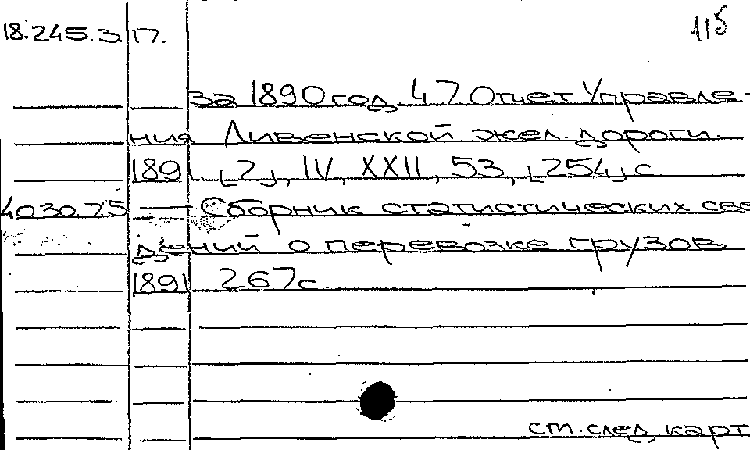 115
18.245.3 П.
за 1890 год. 47 Отчет Управле-
ния Ливенской жел. дороги.
1891 [2], IV, XXII, 53, [254] с.
4030.25 — Сборник статистических све
дений о перевозке грузов
1891 267 с
см. след. карт